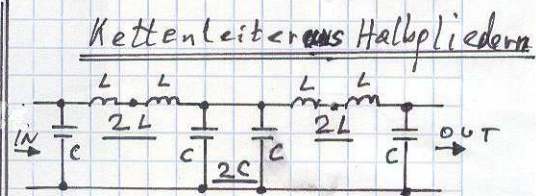 Kettenleiter aus Halbgliedern
L L L L
IN 2L 2L OUT
C C C C
2C